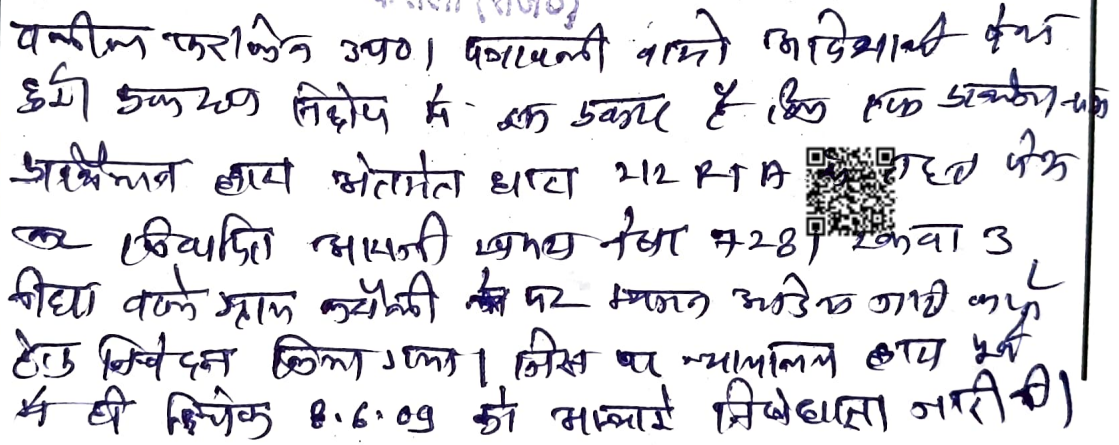 वकील फरीकेन उप०। पत्रावली वास्ते आदेशार्थ पेश
हुयी। प्रकरण संक्षेप में इस प्रकार है कि एक प्रार्थना पत्र
प्रार्थीगण द्वारा अंतर्गत धारा 212 RTA के तहत पेश
कर विवादित आराजी खसरा नंबर 7281 रकवा 3
बीघा वाके ग्राम करौली पर स्थगन आदेश जारी करने
हेतु निवेदन किया गया। जिस पर न्यायालय द्वारा पूर्व
में ही दिनांक 8.6.09 को अस्थाई निषेधाज्ञा जारी की।